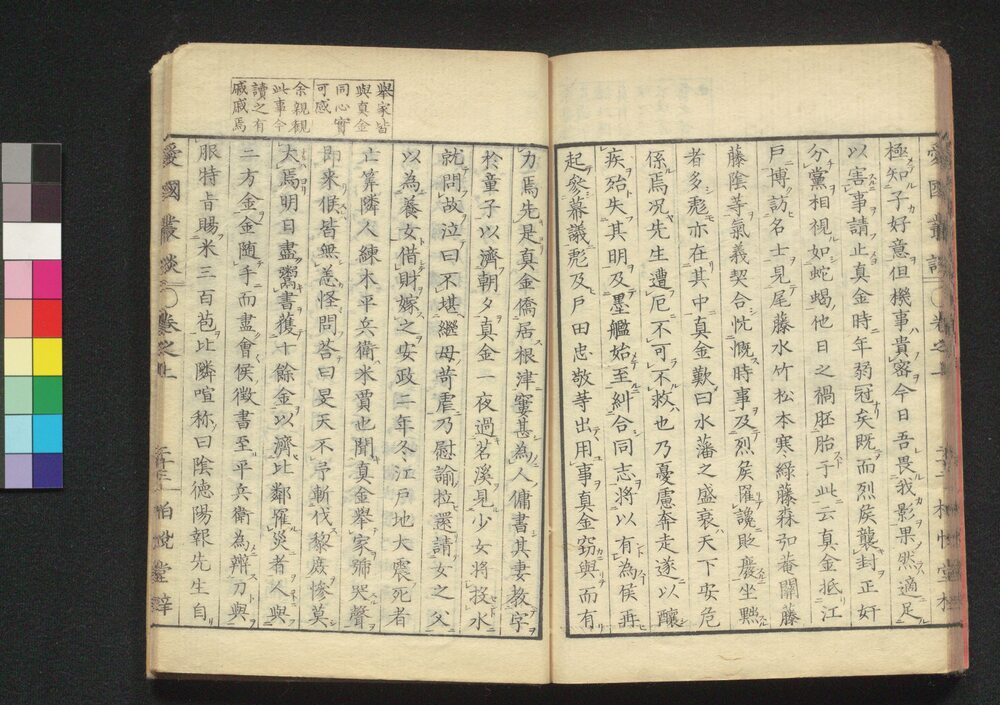 極知子好意但機事貴密今日吾畏我影果然適足
以害事請止真金時年弱冠矣既而烈侯襲封正奸
分黨相視如蛇蝎他日之禍胚胎于此云真金抵江
戸博訪名士見尾藤水竹松本寒緑藤森弘菴關藤
藤陰等氣義契合忼慨時事及烈侯罹讒貶慶坐黜
者多彪亦在其中真金歎曰水藩之盛衰天下安危
係焉况先生遭厄不可不救也乃憂慮奔走遂以釀
疾殆失其明及墨艦始至糾合同志将以有為侯再
起參幕議彪及戸田忠敞等出用事真金窃與而有
擧家皆
與真金
同心實
可感
余親観
此事今
讀之有
戚戚焉
力焉先是真金僑居根津窶甚為人傭書其妻教字
於童子以濟朝夕真金一夜過茗溪見少女将投水
就問故泣曰不堪繼母苛虐乃慰諭拉還請女之父
以為養女借財嫁之安政二年冬江戸地大震死者
亡算隣人練木平兵衛米賈也聞真金擧家號哭聲
即来候皆無恙怪問荅曰旻天不予斬伐黎庶惨莫
大焉明日盡鬻書獲十餘金以濟比鄰罹災者人與
二方金金随手而盡會侯徴書至平兵衛為辨刀與
服特旨賜米三百苞比隣喧称曰陰徳陽報先生自
愛國叢談 卷之上